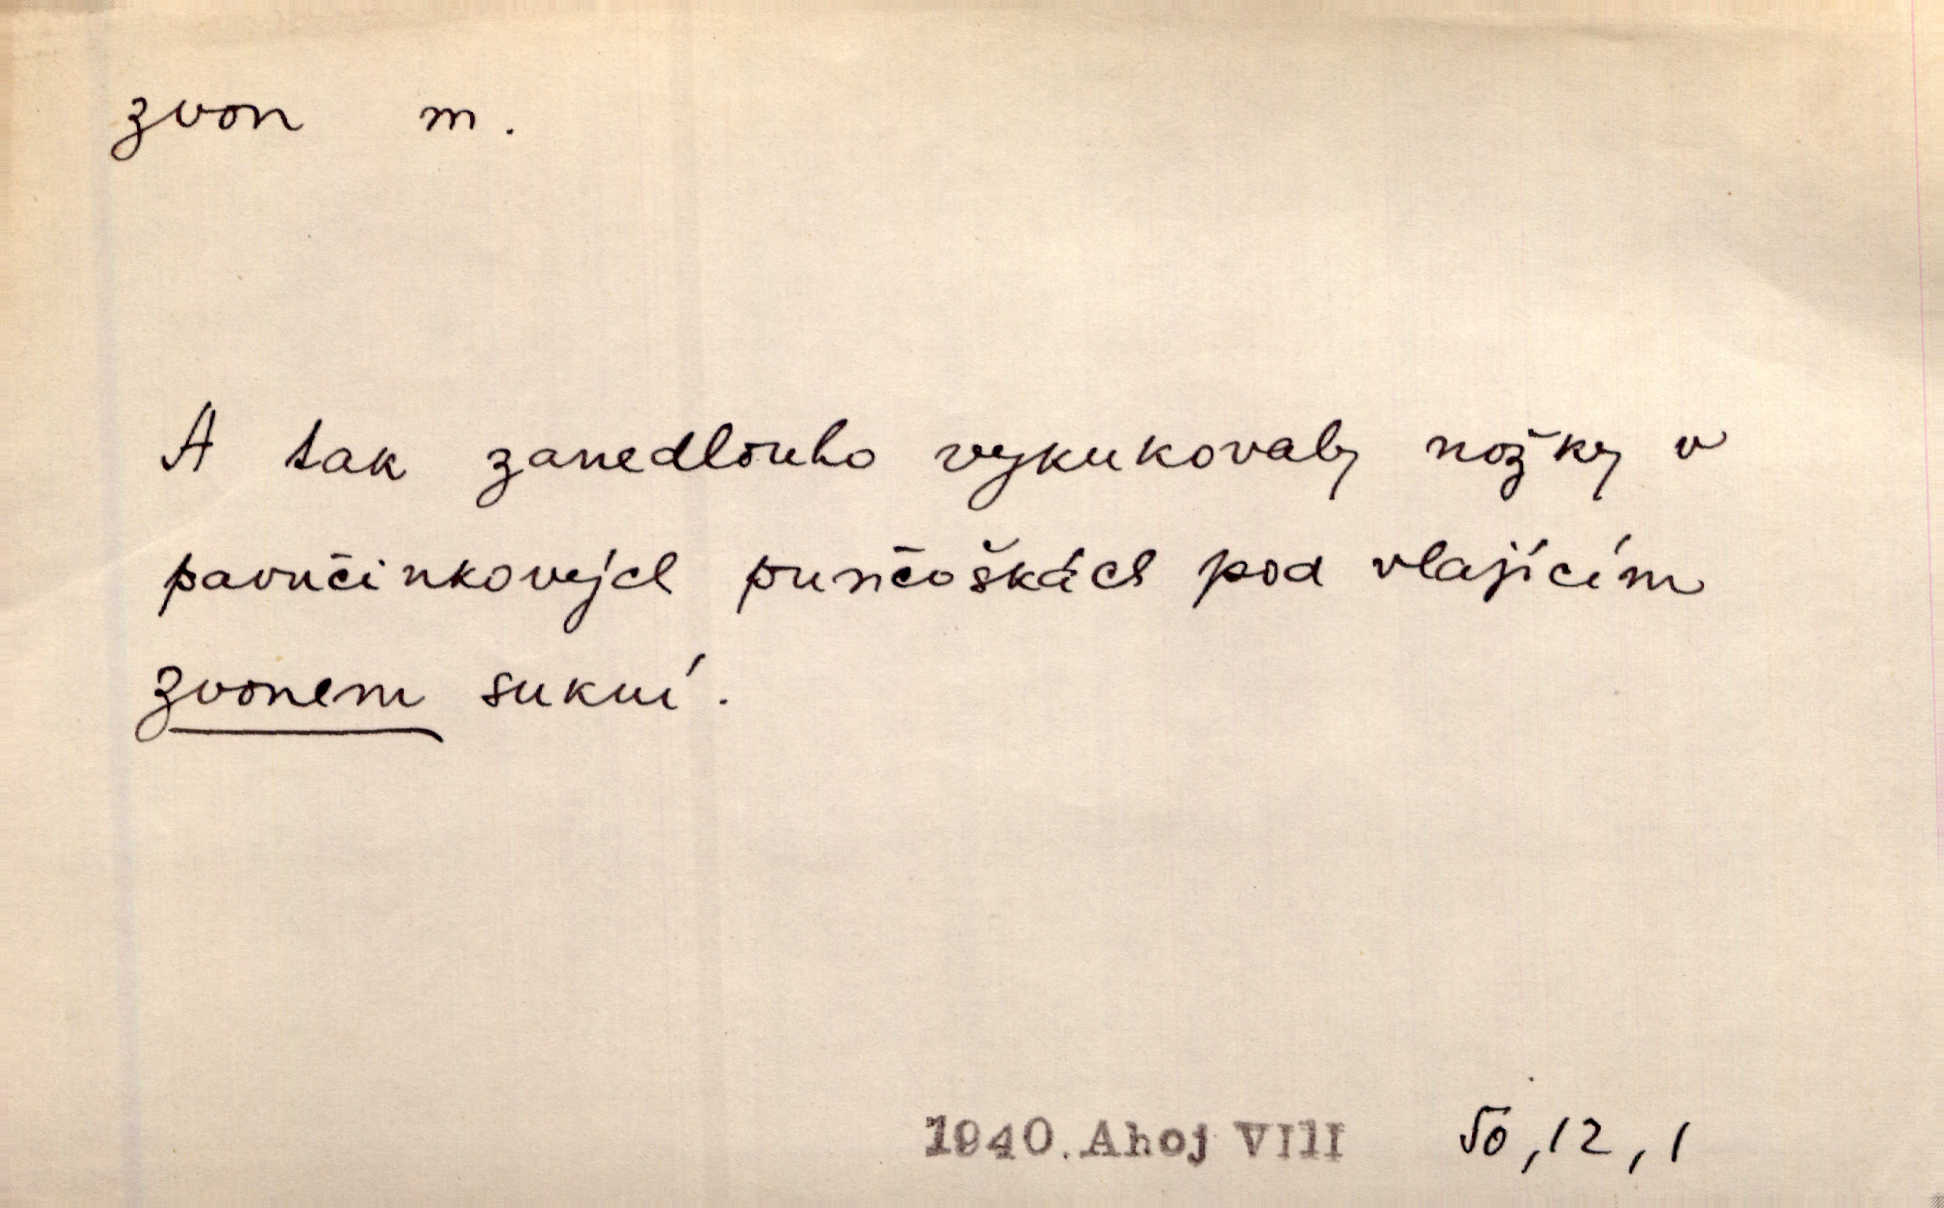 zvon m.
A tak zanedlouho vykukovaly nožky v
pavučinkových punčoškách pod vlajícím
zvonem sukní.
1940. Ahoj VIII 50, 12, 1